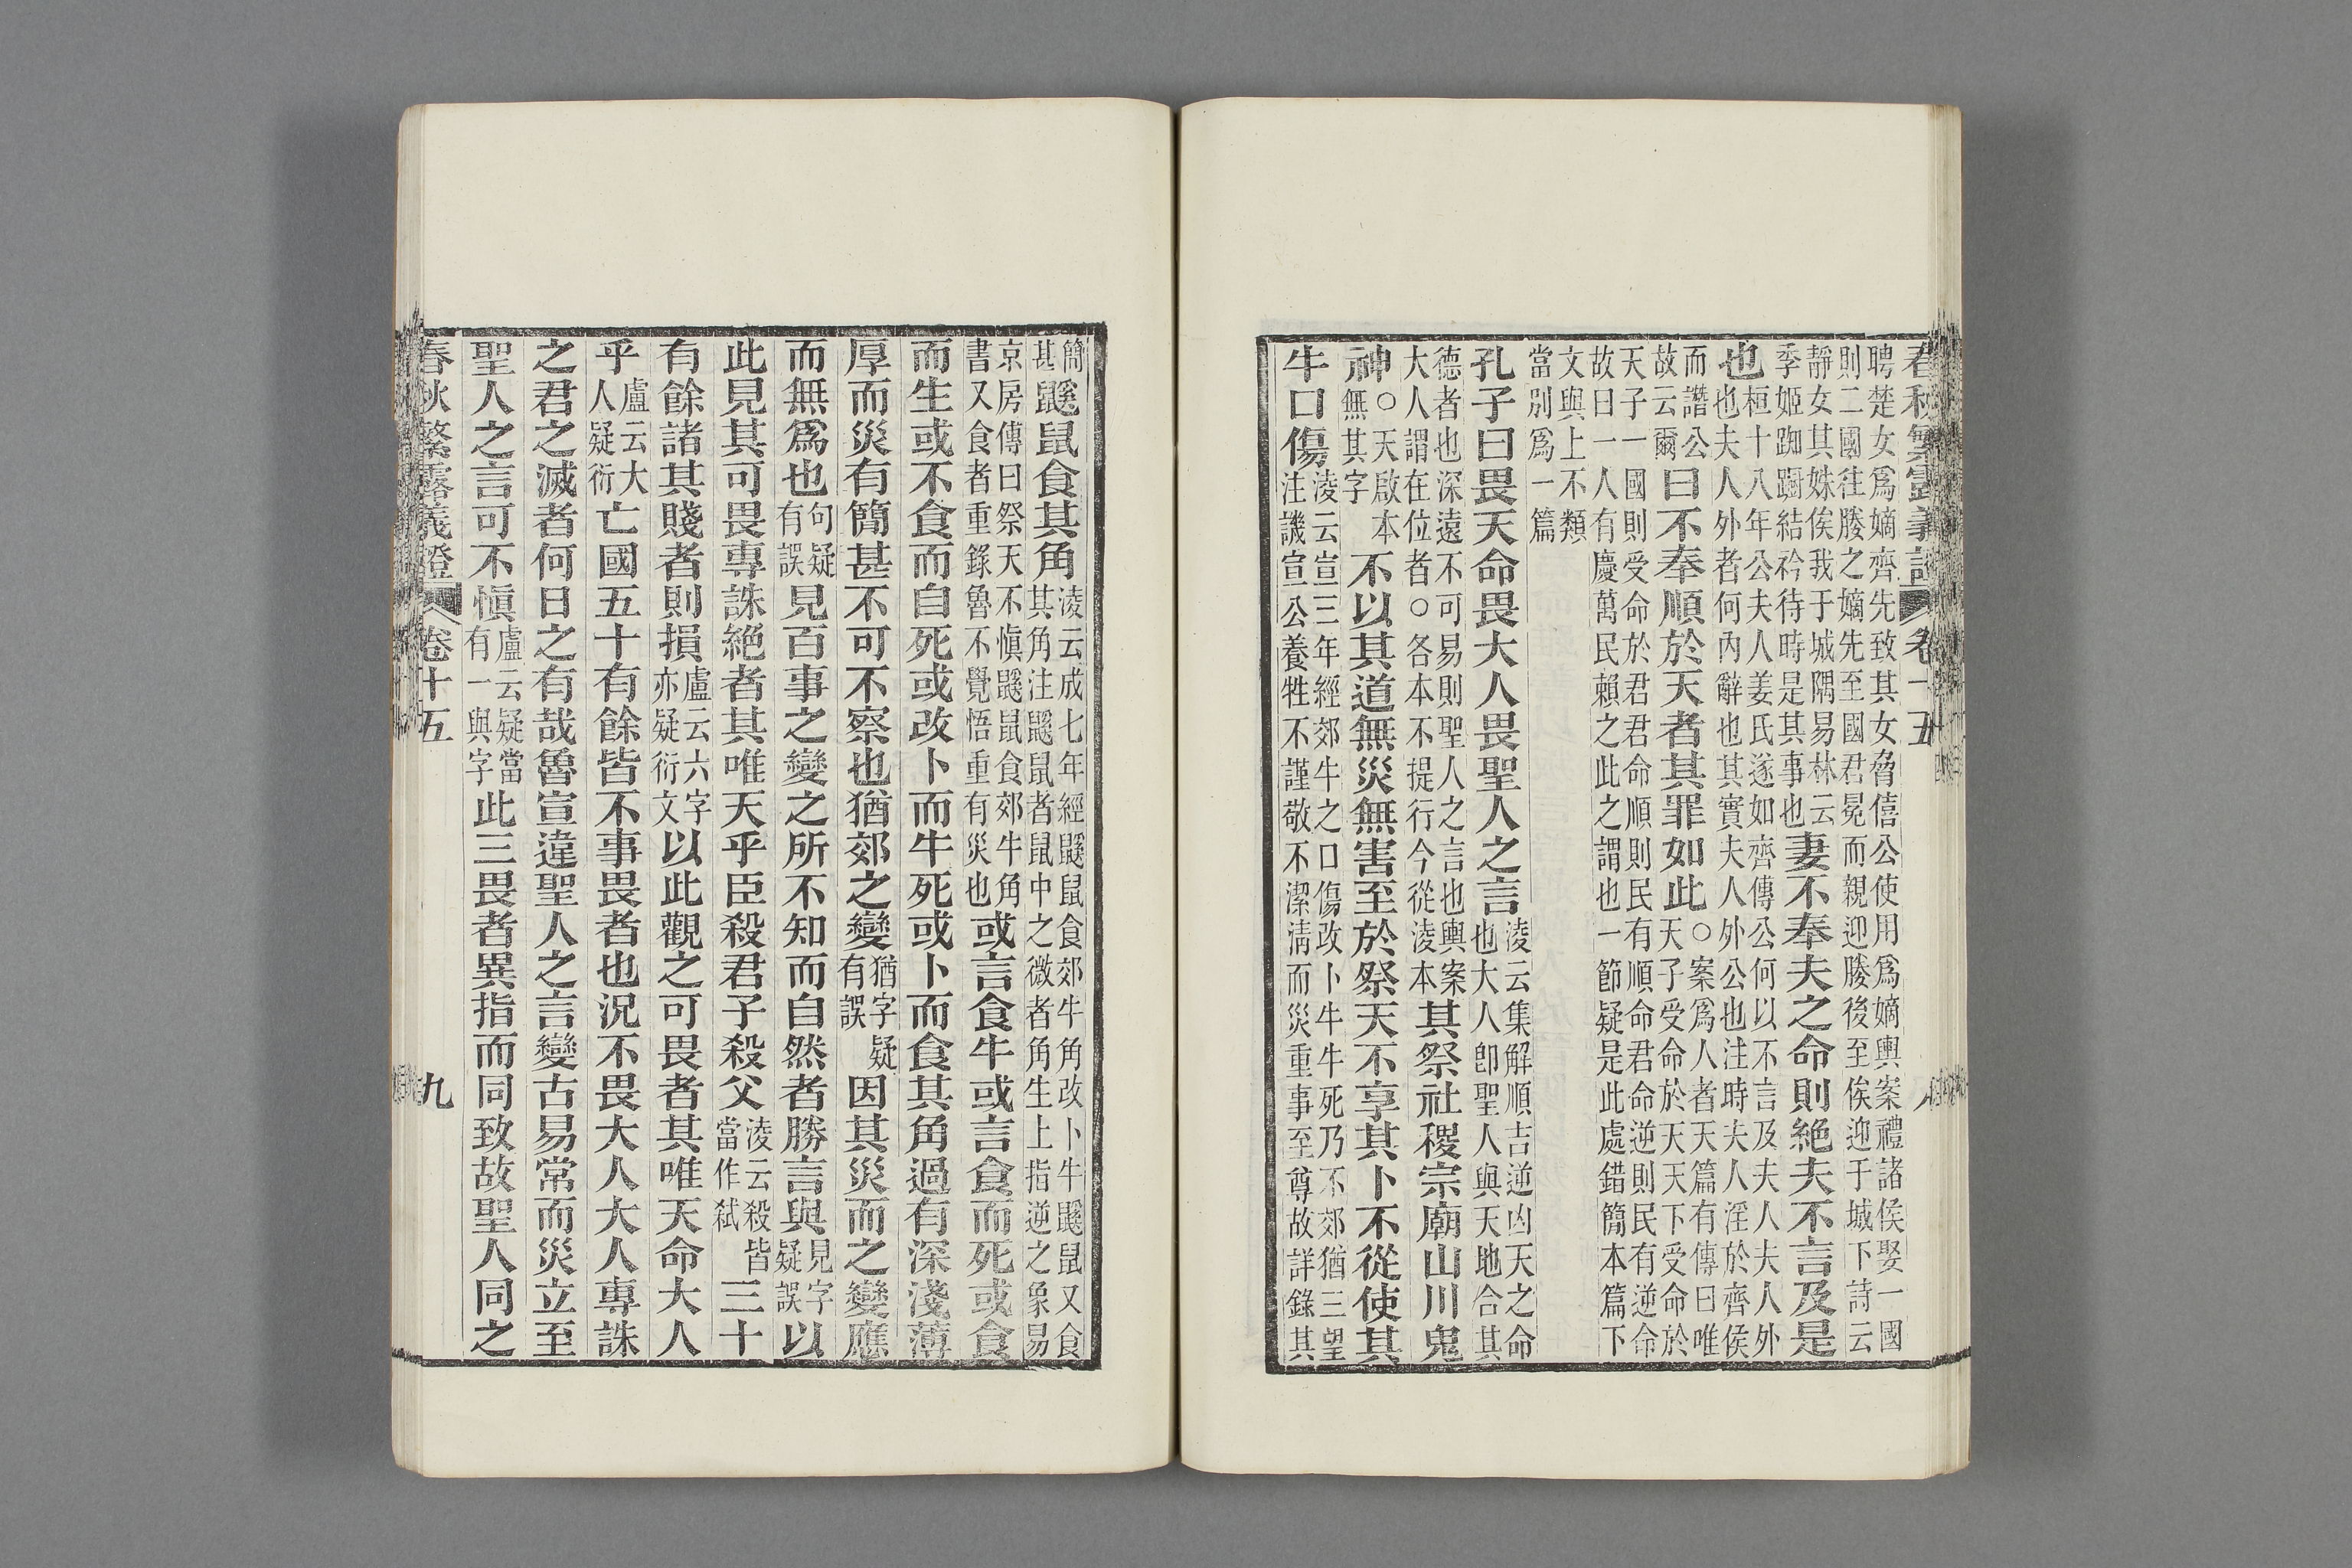 春秋繁露義證 卷十五 八
聘楚女爲嫡齊先致其女脅僖公使用爲嫡輿案禮諸侯娶一國
則二國往媵之嫡先至國君冕而親迎媵後至俟迎于城下詩云
靜女其姝俟我于城隅易林云季姬踟躕結衿待時是其事也妻不奉夫之命則絕夫不言及是
也桓十八年公夫人姜氏遂如齊傳公何以不言及夫人夫人外也夫人外者何內辭也其實夫人外公也注時夫人淫於齊侯
而譖公故云爾曰不奉順於天者其罪如此○案爲人者天篇有傳曰唯天子受命於天天下受命於
天子一國則受命於君君命順則民有順命君命逆則民有逆命
故曰一人有慶萬民賴之此之謂也一節疑是此處錯簡本篇下
文與上不類
當別爲一篇
孔子曰畏天命畏大人畏聖人之言淩云集解順吉逆凶天之命也大人卽聖人與天地合其
德者也深遠不可易則聖人之言也輿案大人謂在位者○各本不提行今從淩本其祭社稷宗廟山川鬼
神○天啟本無其字不以其道無災無害至於祭天不享其卜不從使其
牛口傷淩云宣三年經郊牛之口傷改卜牛牛死乃不郊猶三望注譏宣公養牲不謹敬不潔清而災重事至尊故詳錄其
簡甚鼷鼠食其角淩云成七年經鼷鼠食郊牛角改卜牛鼷鼠又食其角注鼷鼠者鼠中之微者角生上指逆之象易
京房傳曰祭天不愼鼷鼠食郊牛角書又食者重錄魯不覺悟重有災也或言食牛或言食而死或食
而生或不食而自死或改卜而牛死或卜而食其角過有深淺薄
厚而災有簡甚不可不察也猶郊之變猶字疑有誤因其災而之變應
而無爲也句疑有誤見百事之變之所不知而自然者勝言與見字疑誤以
此見其可畏專誅絕者其唯天乎臣殺君子殺父淩云殺皆當作弒三十
有餘諸其賤者則損盧云六字亦疑衍文以此觀之可畏者其唯天命大人
乎盧云大人疑衍亡國五十有餘皆不事畏者也況不畏大人大人專誅
之君之滅者何日之有哉魯宣違聖人之言變古易常而災立至
聖人之言可不愼盧云疑當有一與字此三畏者異指而同致故聖人同之
春秋繁露義證 卷十五 九